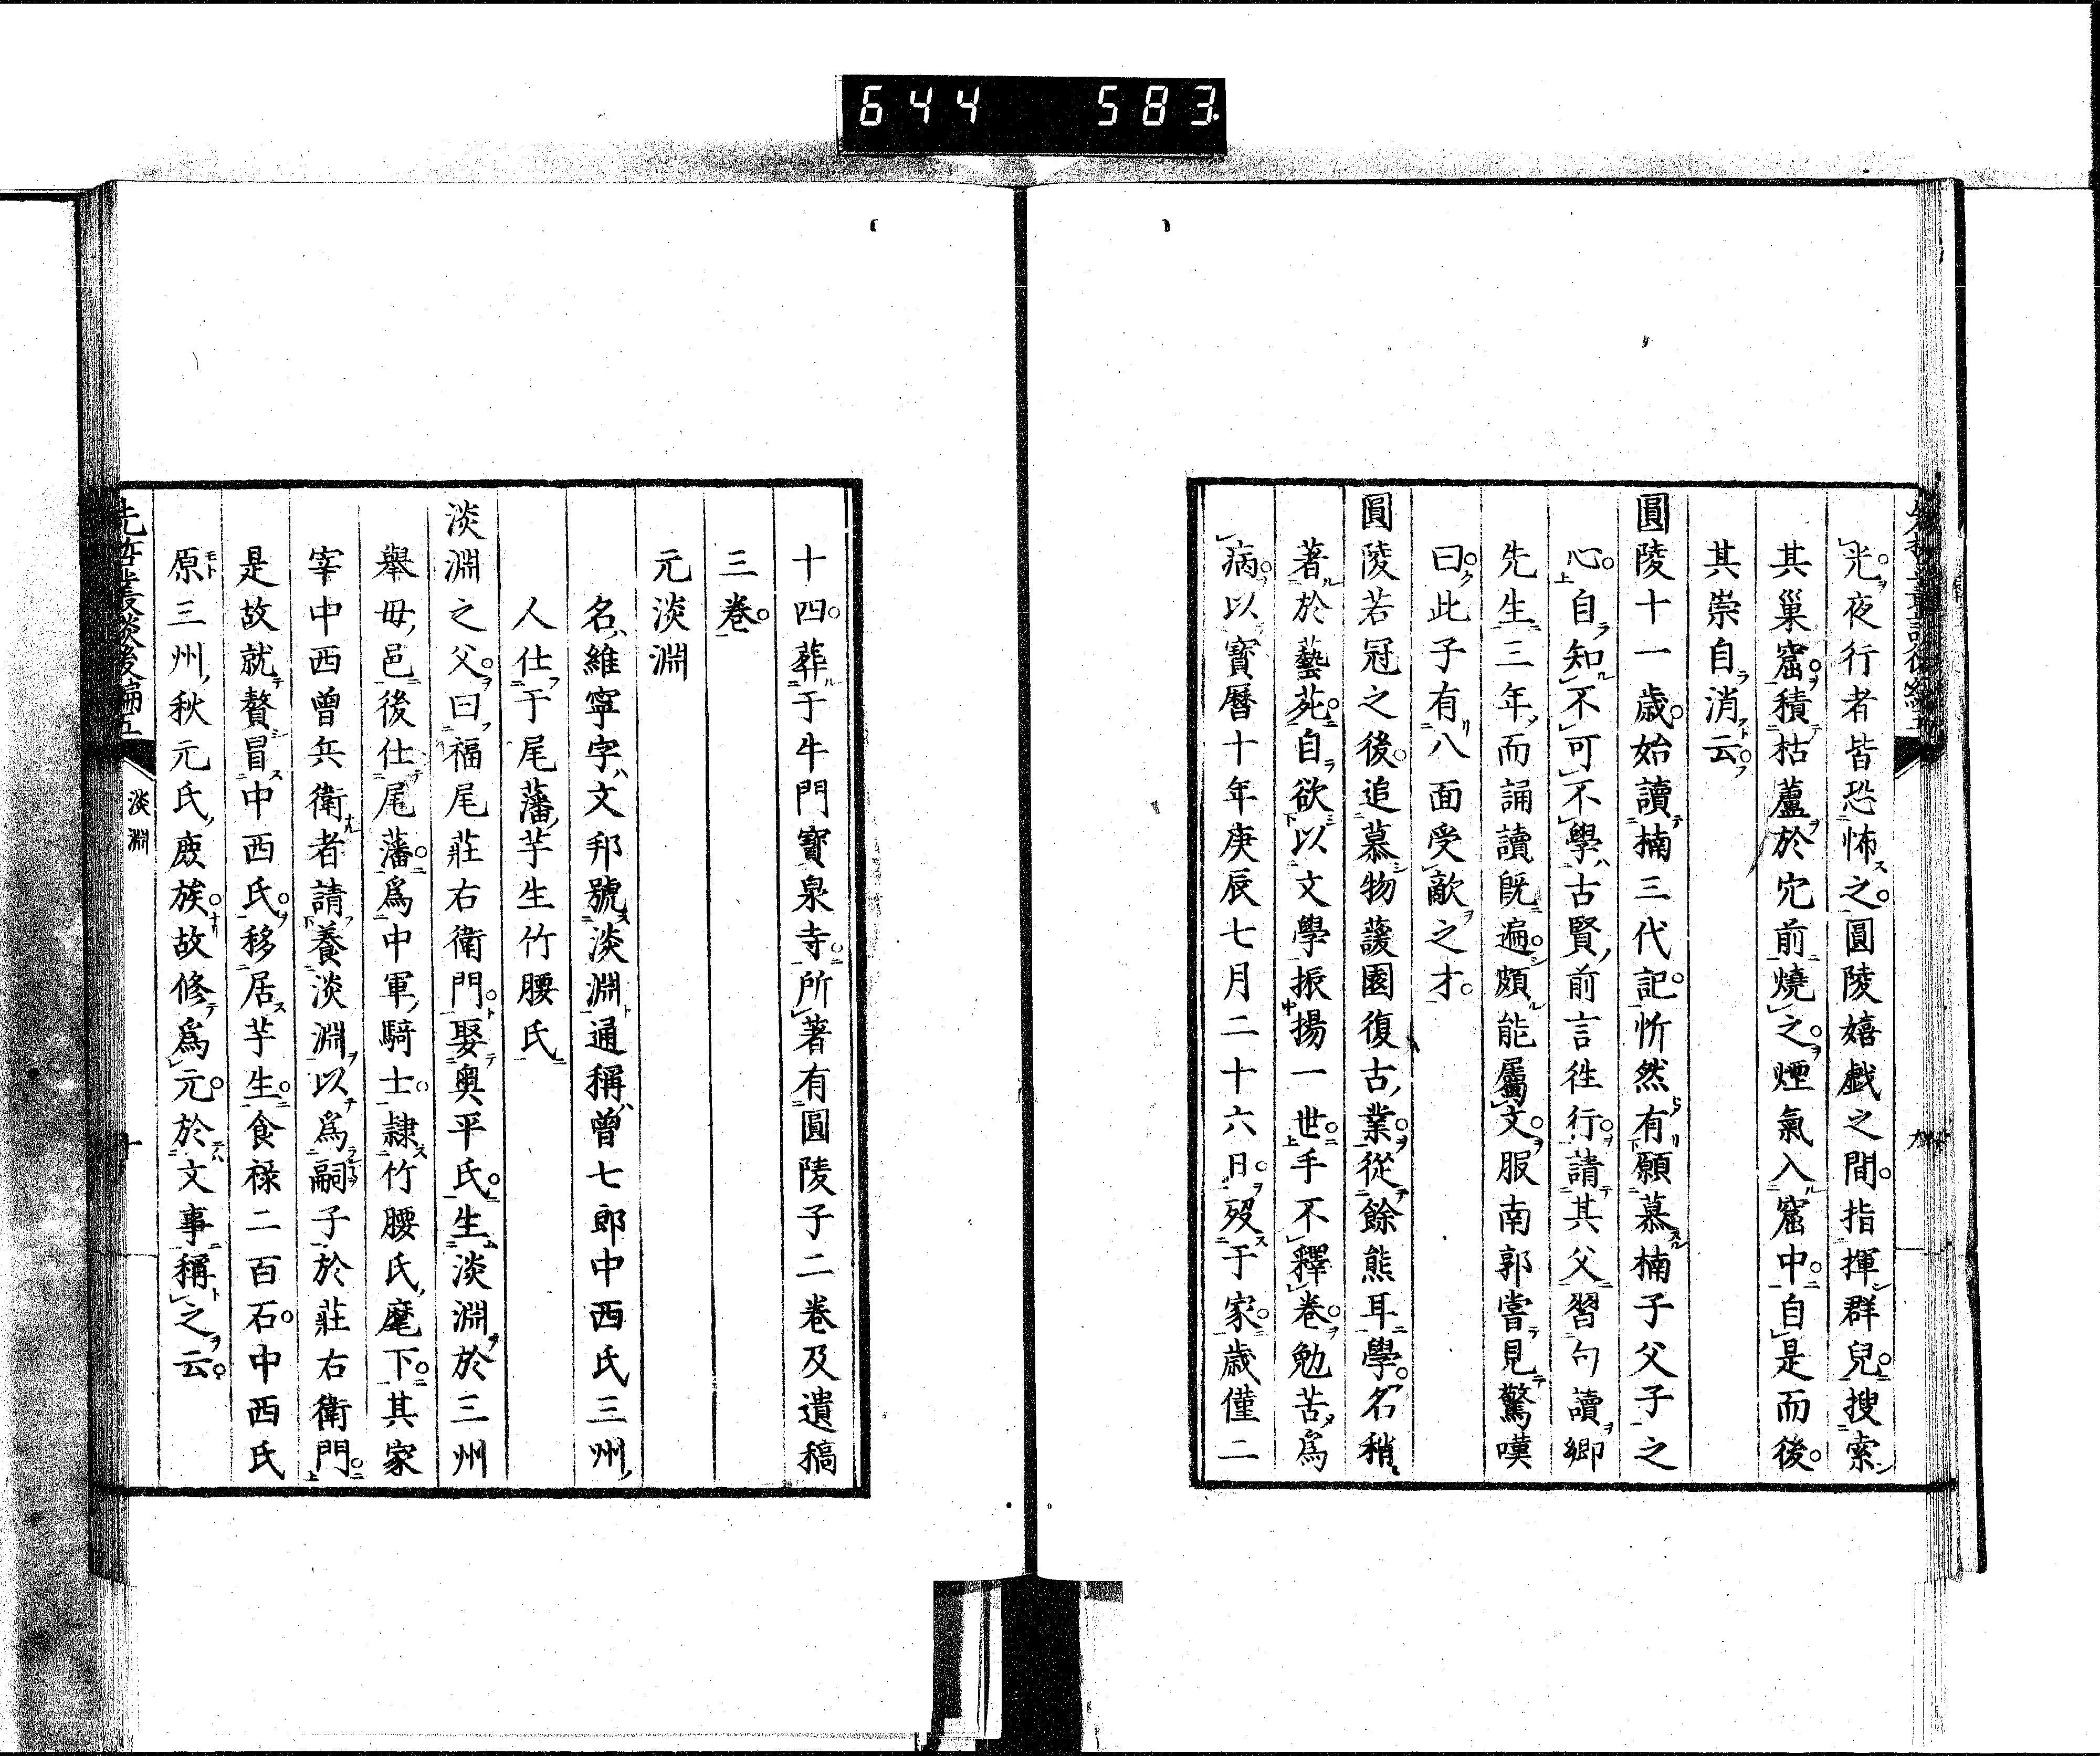 644 583
光夜行者皆恐怖之圓陵嬉戲之間指揮群兒搜索
其巢窟積枯蘆於穴前燒之煙氣入窟中自是而後
其祟自消云
圓陵十一歲始讀楠三代記忻然有願慕楠子父子之
心自知不可不學古賢前言徃行請其父習句讀鄉
先生三年而誦讀既遍頗能屬文服南郭嘗見驚嘆
曰此子有八面受敵之才
圓陵若冠之後追慕物蘐園復古業從餘熊耳學名稍
著於藝苑自欲以文學振揚一世手不釋卷勉苦爲
病以寳曆十年庚辰七月二十六日歿于家歲僅二
十四葬于牛門寳泉寺所著有圓陵子二卷及遺稿
三卷
元淡淵
名維寧字文邦號淡淵通稱曾七郎中西氏三州
人仕于尾藩芋生竹腰氏
淡淵之父曰福尾莊右衛門娶奥平氏生淡淵於三州
舉母邑後仕尾藩爲中軍騎士隷竹腰氏麾下其家
宰中西曾兵衛者請養淡淵以爲嗣子於莊右衛門
是故就贅冒中西氏移居芋生食祿二百石中西氏
原三州秋元氏庶族故修爲元於文事稱之云
先哲叢談後編五
淡淵
十